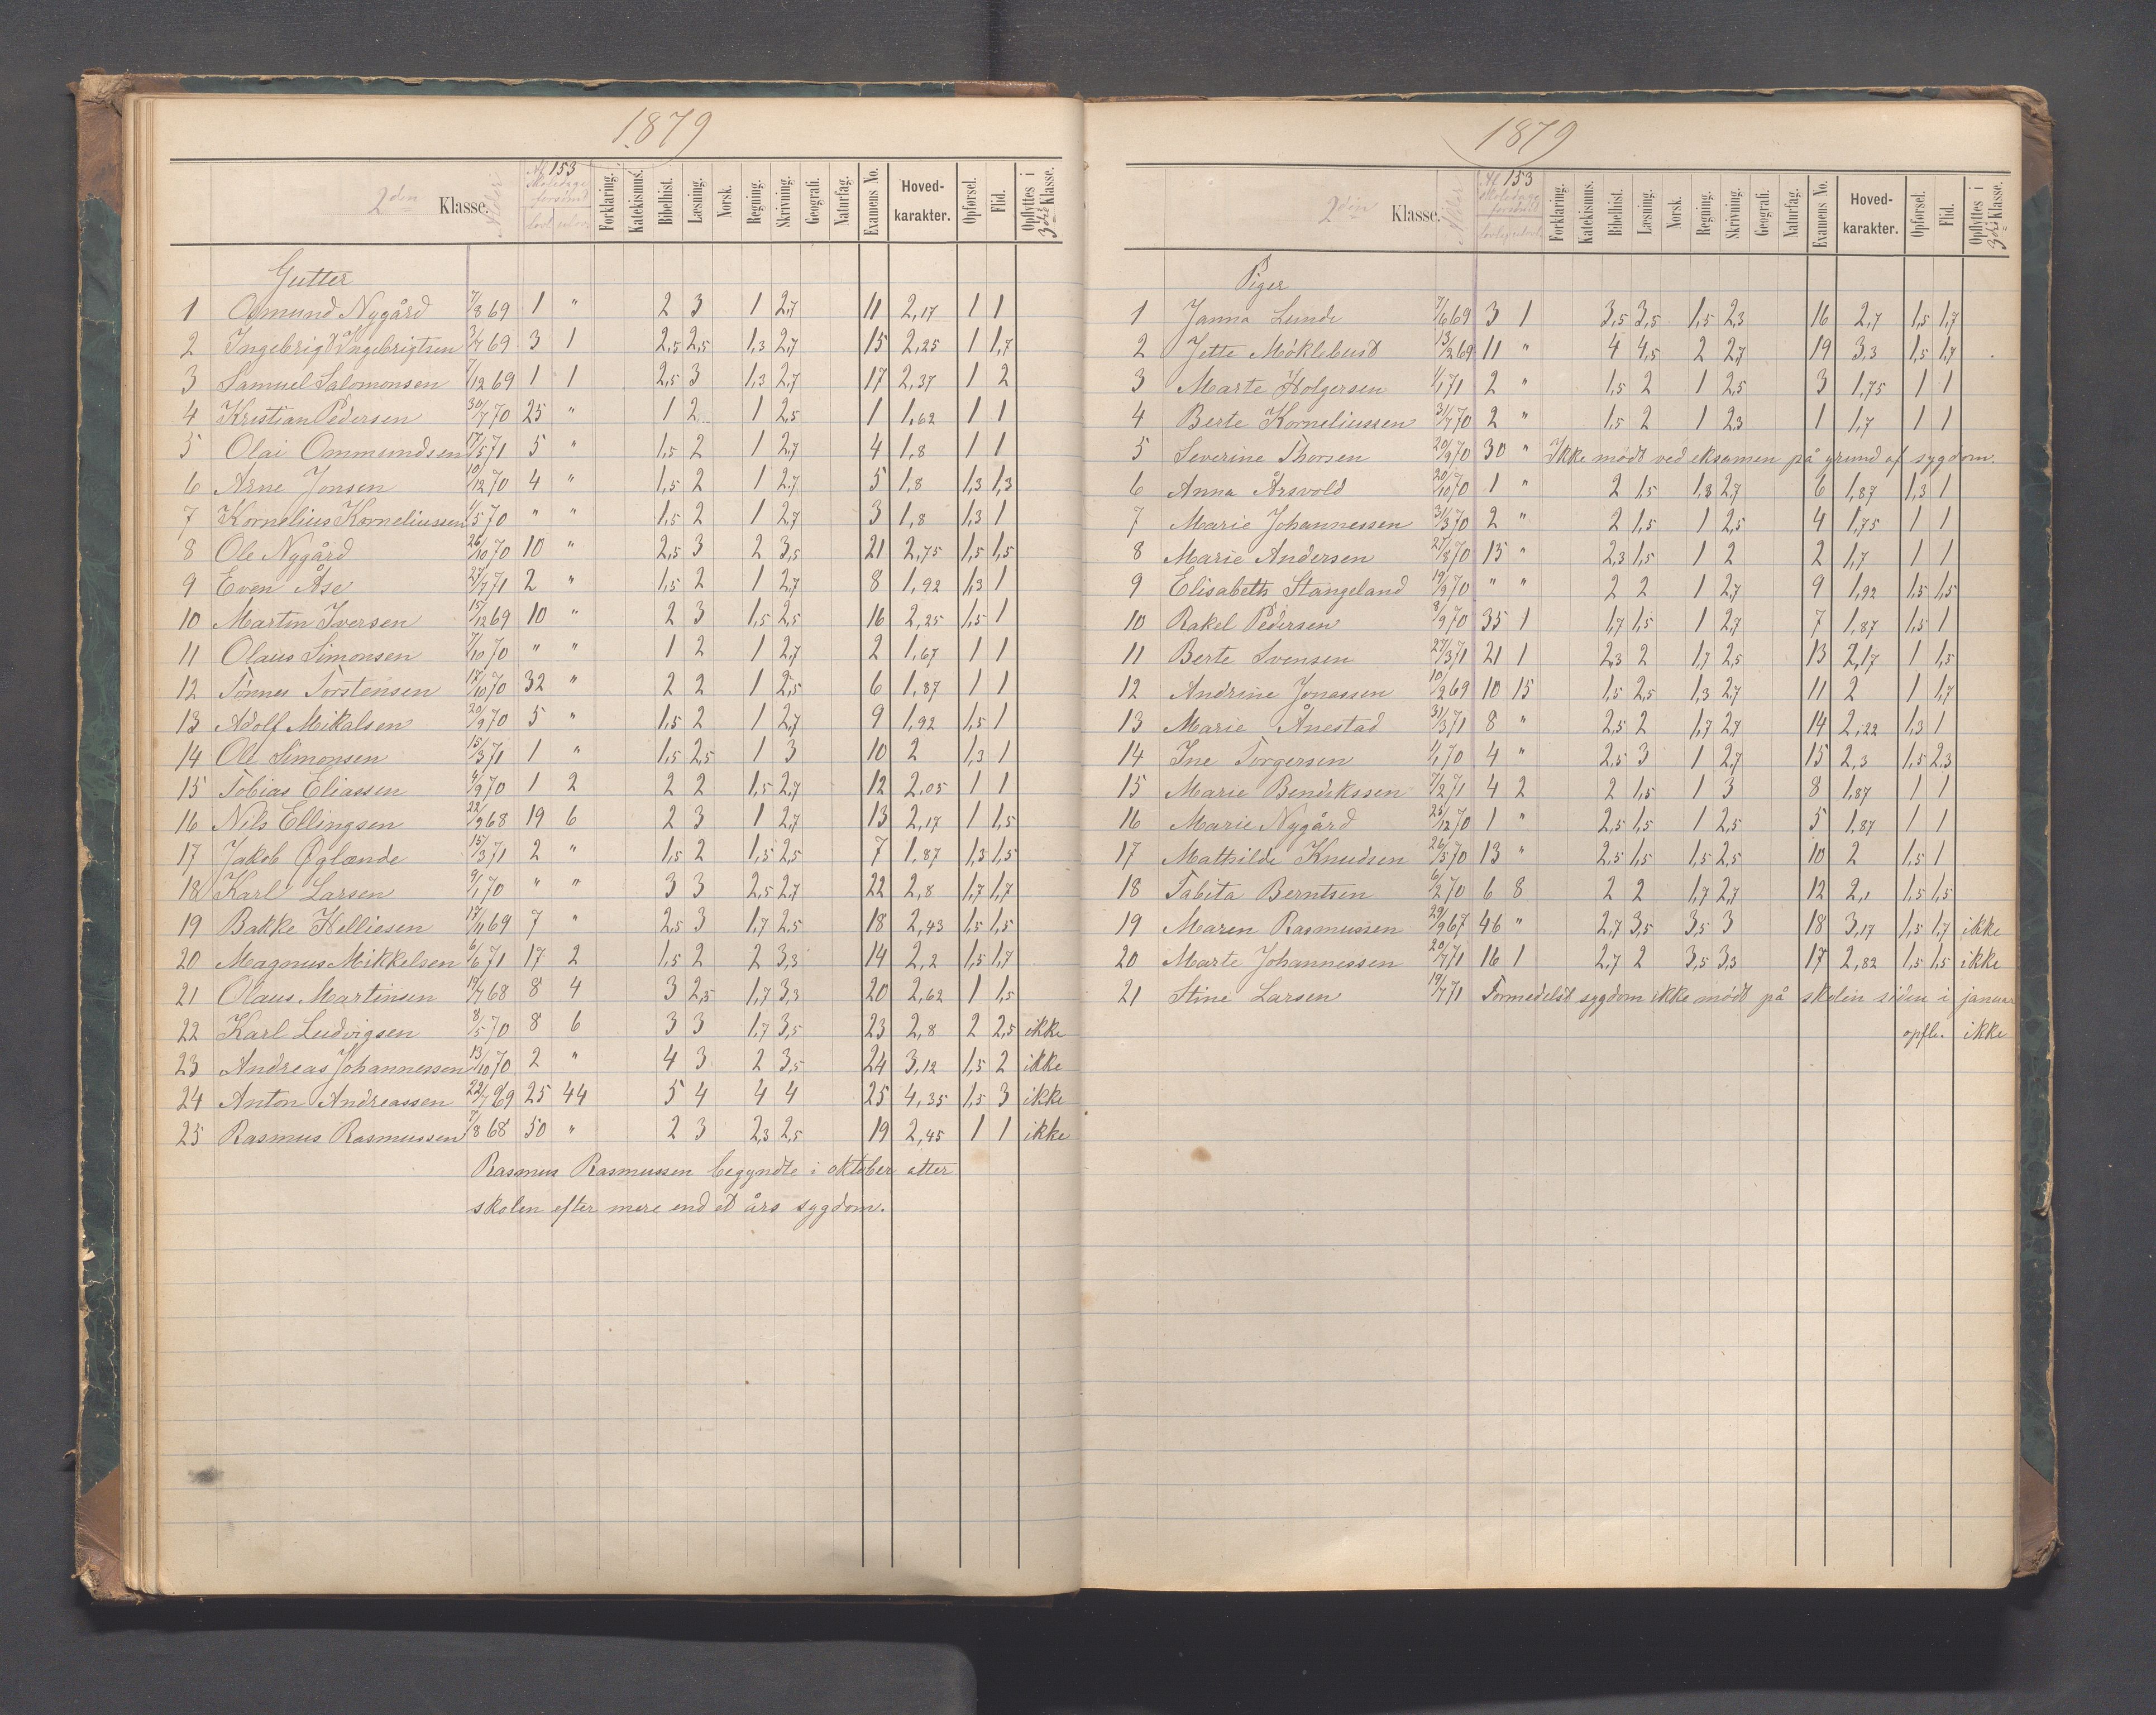 1879
2den Klasse.
Alder
Af 153 Skoledage forsømt
Forklaring. Katekismus. Bibelhist. Læsning. Norsk. Regning. Skrivning. Geografi. Naturfag. Examens No. Hoved-karakter. Opførsel. Flid. Opflyttes i 3die Klasse.
Gutter
1 Osmund Nygård 7/8 69 1 " 2 3 1 2,7 11 2,17 1 1
2 Ingebrigt Ingebrigtsen 3/7 69 3 1 2,5 2,5 1,3 2,7 15 2,25 1 1,7
3 Samuel Salomonsen 7/12 69 1 1 2,5 3 1,3 2,7 17 2,37 1 2
4 Kristian Pedersen 30/7 70 25 " 1 2 1 2,5 1 1,62 1 1
5 Olai Ommundsen 17/5 71 5 " 1,5 2 1 2,7 4 1,8 1 1
6 Arne Jonsen 10/12 70 4 " 1,5 2 1 2,7 5 1,8 1,3 1,3
7 Kornelius Korneliussen 1/5 70 " " 1,5 2 1 2,7 3 1,8 1,3 1
8 Ole Nygård 26/10 70 10 " 2,5 3 2 3,5 21 2,75 1,5 1,5
9 Even Åse 27/7 71 2 " 1,5 2 1 2,7 8 1,92 1,3 1
10 Martin Iversen 15/12 69 10 " 2 3 1,5 2,5 16 2,25 1,5 1
11 Olaus Simonsen 7/10 70 " " 1 2 1 2,7 2 1,67 1 1
12 Tönnes Torstensen 17/10 70 32 " 2 2 1 2,5 6 1,87 1 1
13 Adolf Mikalsen 20/9 70 5 " 1,5 2 1 2,7 9 1,92 1,5 1
14 Ole Simonsen 15/3 71 1 " 1,5 2,5 1 3 10 2 1,3 1
15 Tobias Eliassen 4/9 70 1 2 2 2 1,5 2,7 12 2,05 1 1
16 Nils Ellingsen 22/9 68 19 6 2 3 1 2,7 13 2,17 1 1,5
17 Jakob Øglænde 15/3 71 2 " 1,5 2 1,5 2,5 7 1,87 1,3 1,5
18 Karl Larsen 9/1 70 " " 3 3 2,5 2,7 22 2,8 1,7 1,7
19 Bakke Helliesen 17/11 69 7 " 2,5 3 1,7 2,5 18 2,43 1,5 1,5
20 Magnus Mikkelsen 6/6 71 17 2 1,5 2 2 3,3 14 2,2 1,5 1,7
21 Olaus Martinsen 19/7 68 8 4 3 2,5 1,7 3,3 20 2,62 1 1,5
22 Karl Ludvigsen 8/5 70 8 6 3 3 1,7 3,5 23 2,8 2 2,5 ikke
23 Andreas Johannessen 13/10 70 2 " 4 3 2 3,5 24 3,12 1,5 2 ikke
24 Anton Andreassen 22/7 69 25 44 5 4 4 4 25 4,35 1,5 3 ikke
25 Rasmus Rasmussen 7/8 68 50 " 2 3 2,3 2,5 19 2,45 1 1 ikke
Rasmus Rasmussen begyndte i oktober atter
skolen efter mere end et års sygdom.
1879
2den Klasse.
Alder
Af 153 Skoledage forsømt
Forklaring. Katekismus. Bibelhist. Læsning. Norsk. Regning. Skrivning. Geografi. Naturfag. Examens No. Hoved-karakter. Opførsel. Flid. Opflyttes i 3die Klasse.
Piger
1 Janna Lunde 7/6 69 3 1 3,5 3,5 1,5 2,3 16 2,7 1,5 1,7
2 Jette Möklebust 13/12 69 11 " 4 4,5 2 2,7 19 3,3 1,5 1,7
3 Marte Holgersen 1/1 71 2 " 1,5 2 1 2,5 3 1,75 1 1
4 Berte Korneliussen 31/7 70 2 " 1,5 2 1 2,3 1 1,7 1 1
5 Severine Thorsen 20/9 70 30 " Ikke mödt ved eksamen på grund af sygdom.
6 Anna Årsvold 20/10 70 1 " 2 1,5 1,3 2,7 6 1,87 1,3 1
7 Marie Johannessen 31/3 70 2 " 2 1,5 1 2,5 4 1,75 1 1
8 Marie Andersen 27/8 70 15 " 2,3 1,5 1 2 2 1,7 1 1
9 Elisabeth Stangeland 19/9 70 " " 2 2 1 2,7 9 1,92 1,5 1,5
10 Rakel Pedersen 8/9 70 35 1 1,7 1,5 1 2,7 7 1,87 1,5 1
11 Berte Svensen 27/3 71 21 1 2,3 2 1,7 2,5 13 2,17 1 1,5
12 Andrine Jonassen 10/2 69 10 15 1,5 2,5 1,3 2,7 11 2 1 1,7
13 Marie Ånestad 31/3 71 8 " 2,5 2 1,7 2,7 14 2,22 1,3 1
14 Ine Torgersen 1/1 70 4 " 2,5 3 1 2,7 15 2,3 1,5 2,3
15 Marie Bendikssen 7/2 71 4 2 2 1,5 1 3 8 1,87 1 1
16 Marie Nygård 25/12 70 1 " 2,5 1,5 1 2,5 5 1,87 1 1
17 Mathilde Knudsen 26/5 70 13 " 2,5 1,5 1,5 2,5 10 2 1,5 1
18 Tabita Berntsen 6/2 70 6 8 2 2 1,7 2,7 12 2,1 1,5 1,5
19 Maren Rasmussen 29/9 67 46 " 2,7 3,5 3,5 3 18 3,17 1,5 1,7 ikke
20 Marte Johannessen 20/7 71 16 1 2,7 2 3,5 3,3 17 2,82 1,5 1,5 ikke
21 Stine Larsen 19/7 71 Formedelst sygdom ikke mödt på skolen siden i januar
opfl. ikke